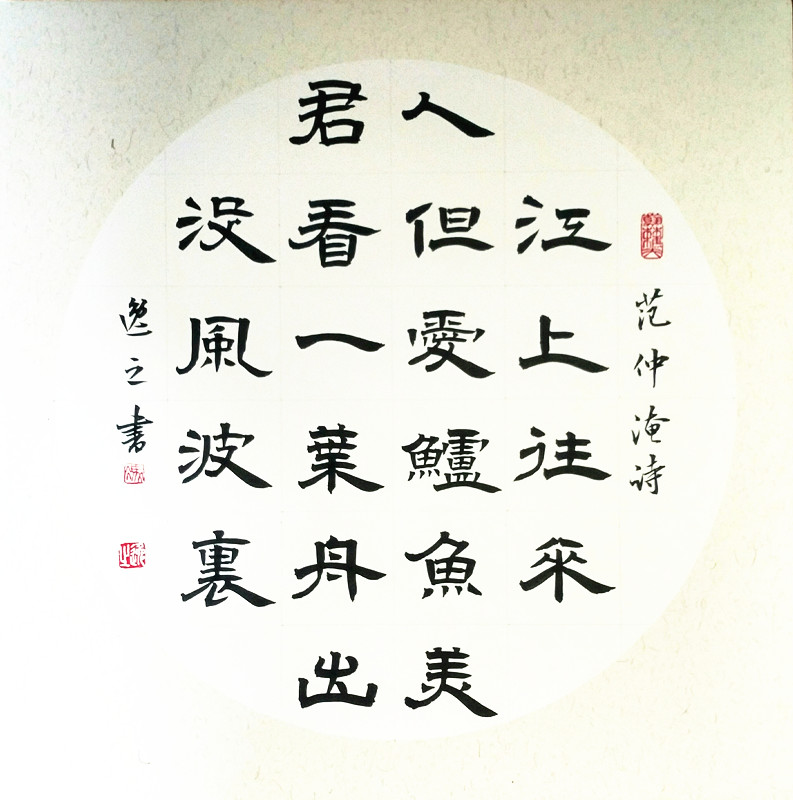 范仲淹诗
江上往来
人但愛鱸魚美
君看一葉舟出
没風波裏
逸之書